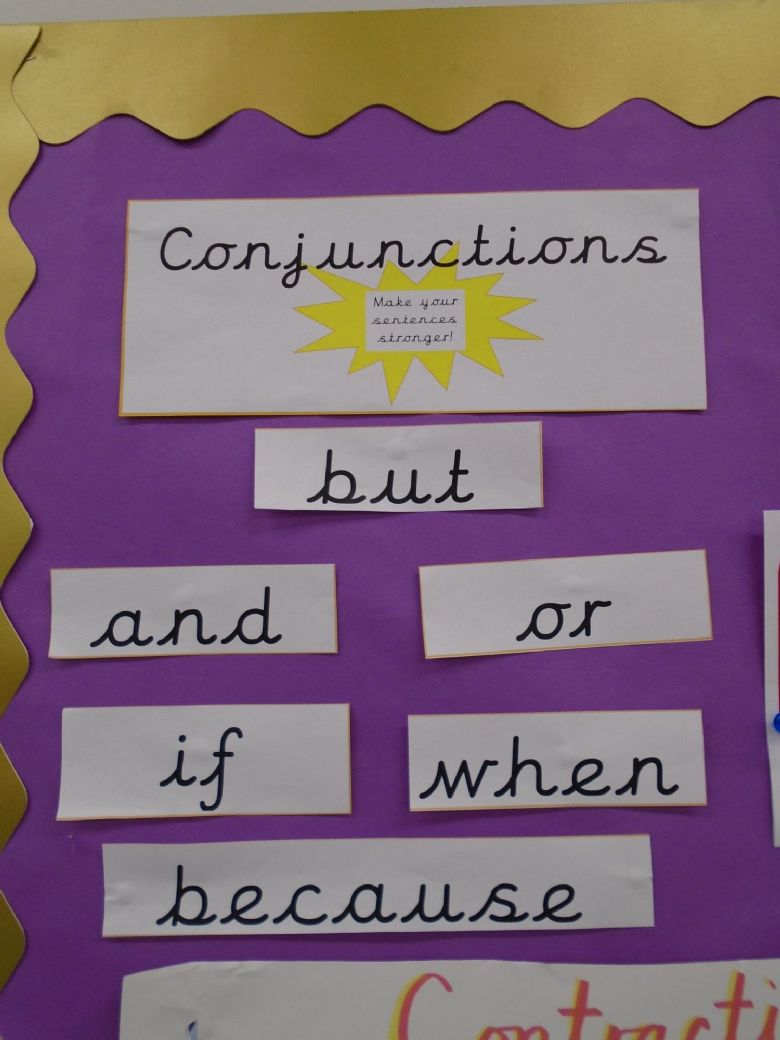 Conjunctions
Make your
sentences
stronger!
but
and or
if when
because